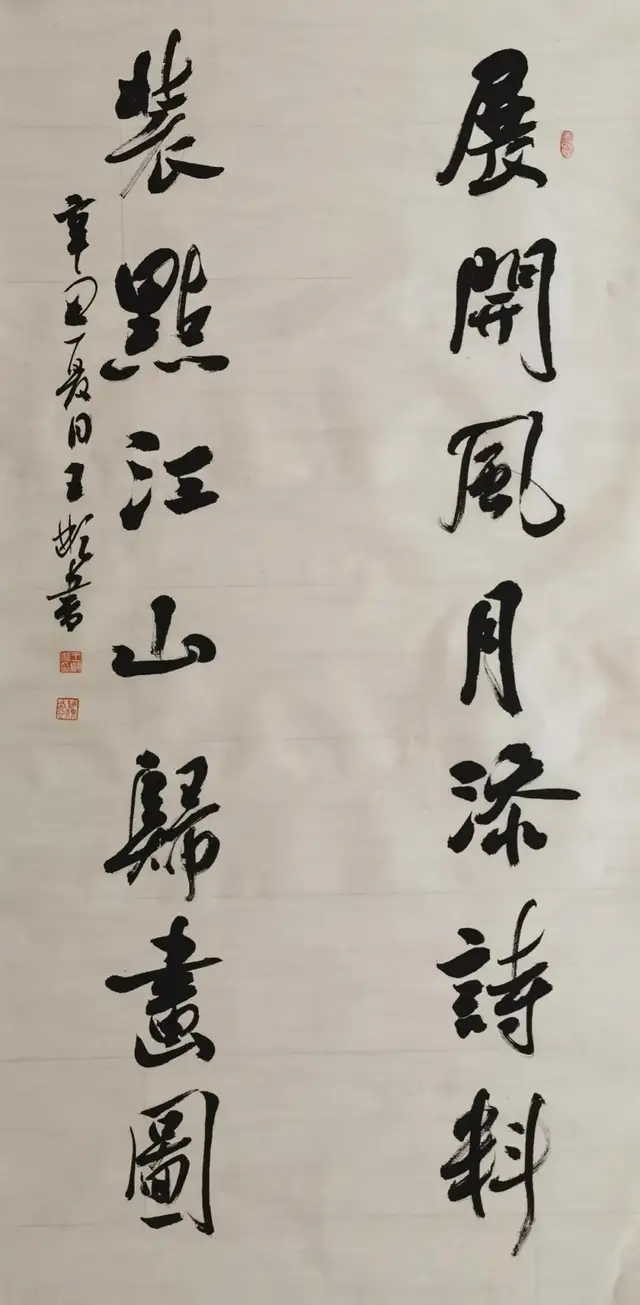 展開風月添詩料
裝點江山歸畫圖
辛丑夏日王彬書